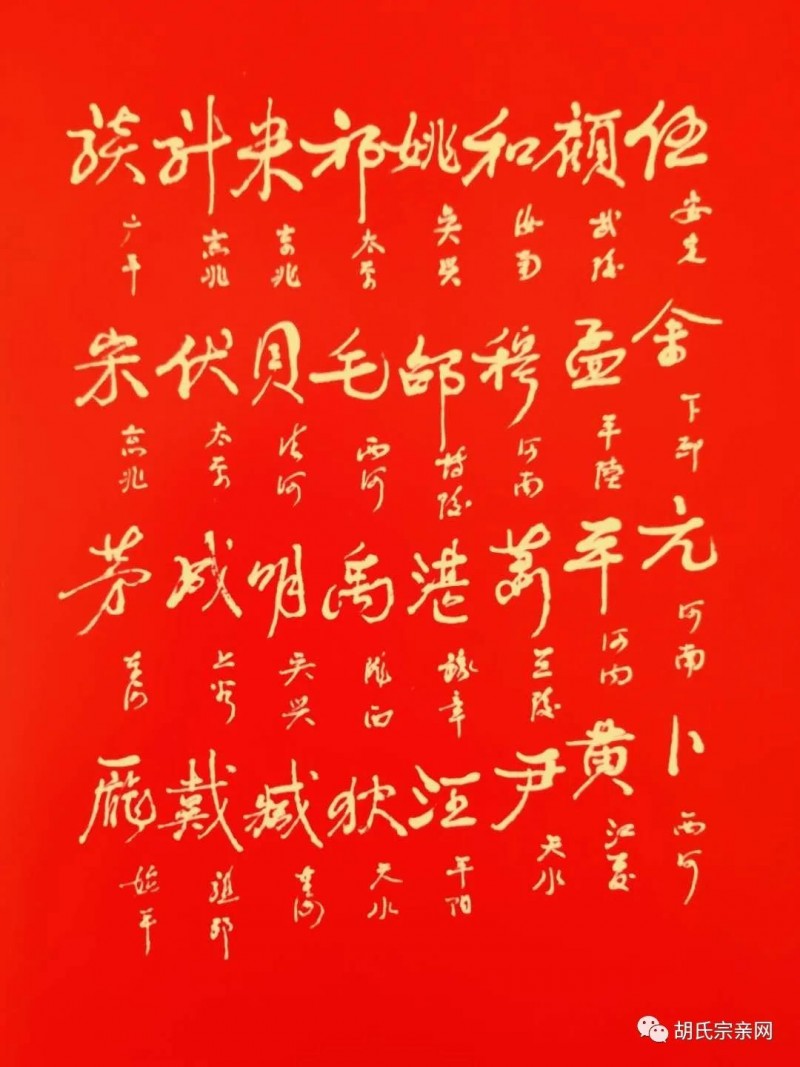 伍 安定 余 下邳 元 河南 卜 西河
顧 武陵 孟 平陸 平 河内 黄 江夏
和 汝南 穆 河南 萧 兰陵 尹 天水
姚 吴興 邵 博陵 湛 豫章 汪 平阳
祁 太原 毛 西河 禹 陇西 狄 天水
米 京兆 貝 清河 明 吴兴 臧 东海
計 京兆 伏 太原 成 上谷 戴 譙郡
談 广平 宋 京兆 茅 东海 龐 始平
胡氏宗亲网